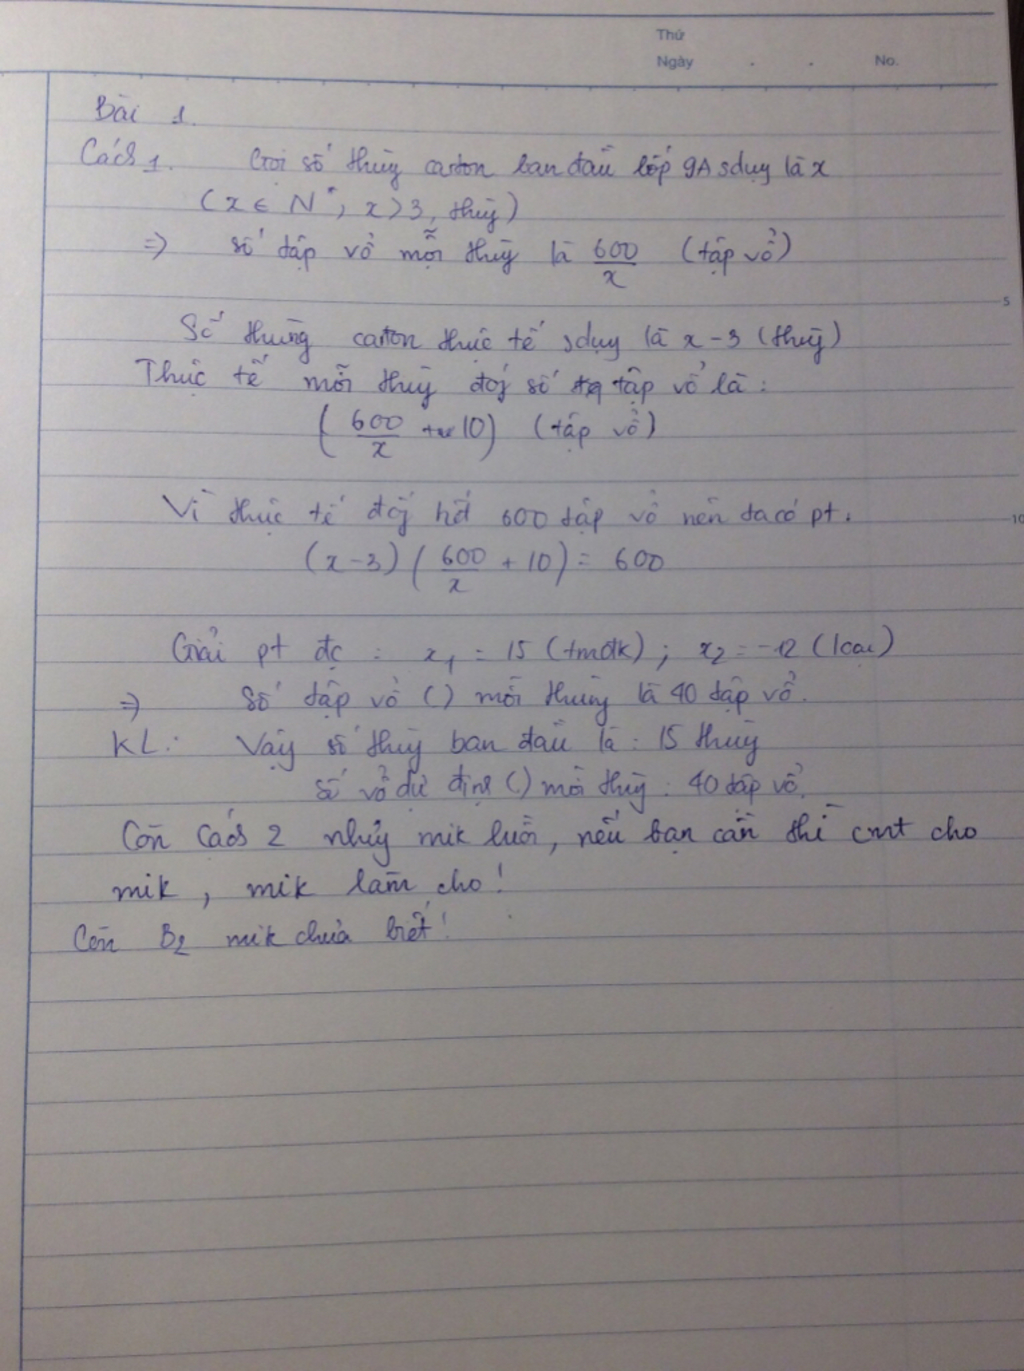 Thứ
Ngày . . No.
Bài 1.
Cách 1. Gọi số thùng carton ban đầu lớp 9A sdụng là x
(x ∈ N*; x > 3, thùng)
=> số tập vở mỗi thùng là 600/x (tập vở)
5
Số thùng carton thực tế sdụng là x - 3 (thùng)
Thực tế mỗi thùng đóng số tập vở là:
(600/x + 10) (tập vở)
Vì thực tế đóng hết 600 tập vở nên ta có pt.
10
(x - 3) (600/x + 10) = 600
Giải pt đc : x₁ = 15 (tmđk) ; x₂ = -12 (loại)
=> Số tập vở () mỗi thùng là 40 tập vở.
KL: Vậy số thùng ban đầu là : 15 thùng
Số vở dự định () mỗi thùng : 40 tập vở.
Còn Cách 2 nhưng mik lười, nếu bạn cần thì cmt cho
mik, mik làm cho!
Còn B2 mik chưa biết!